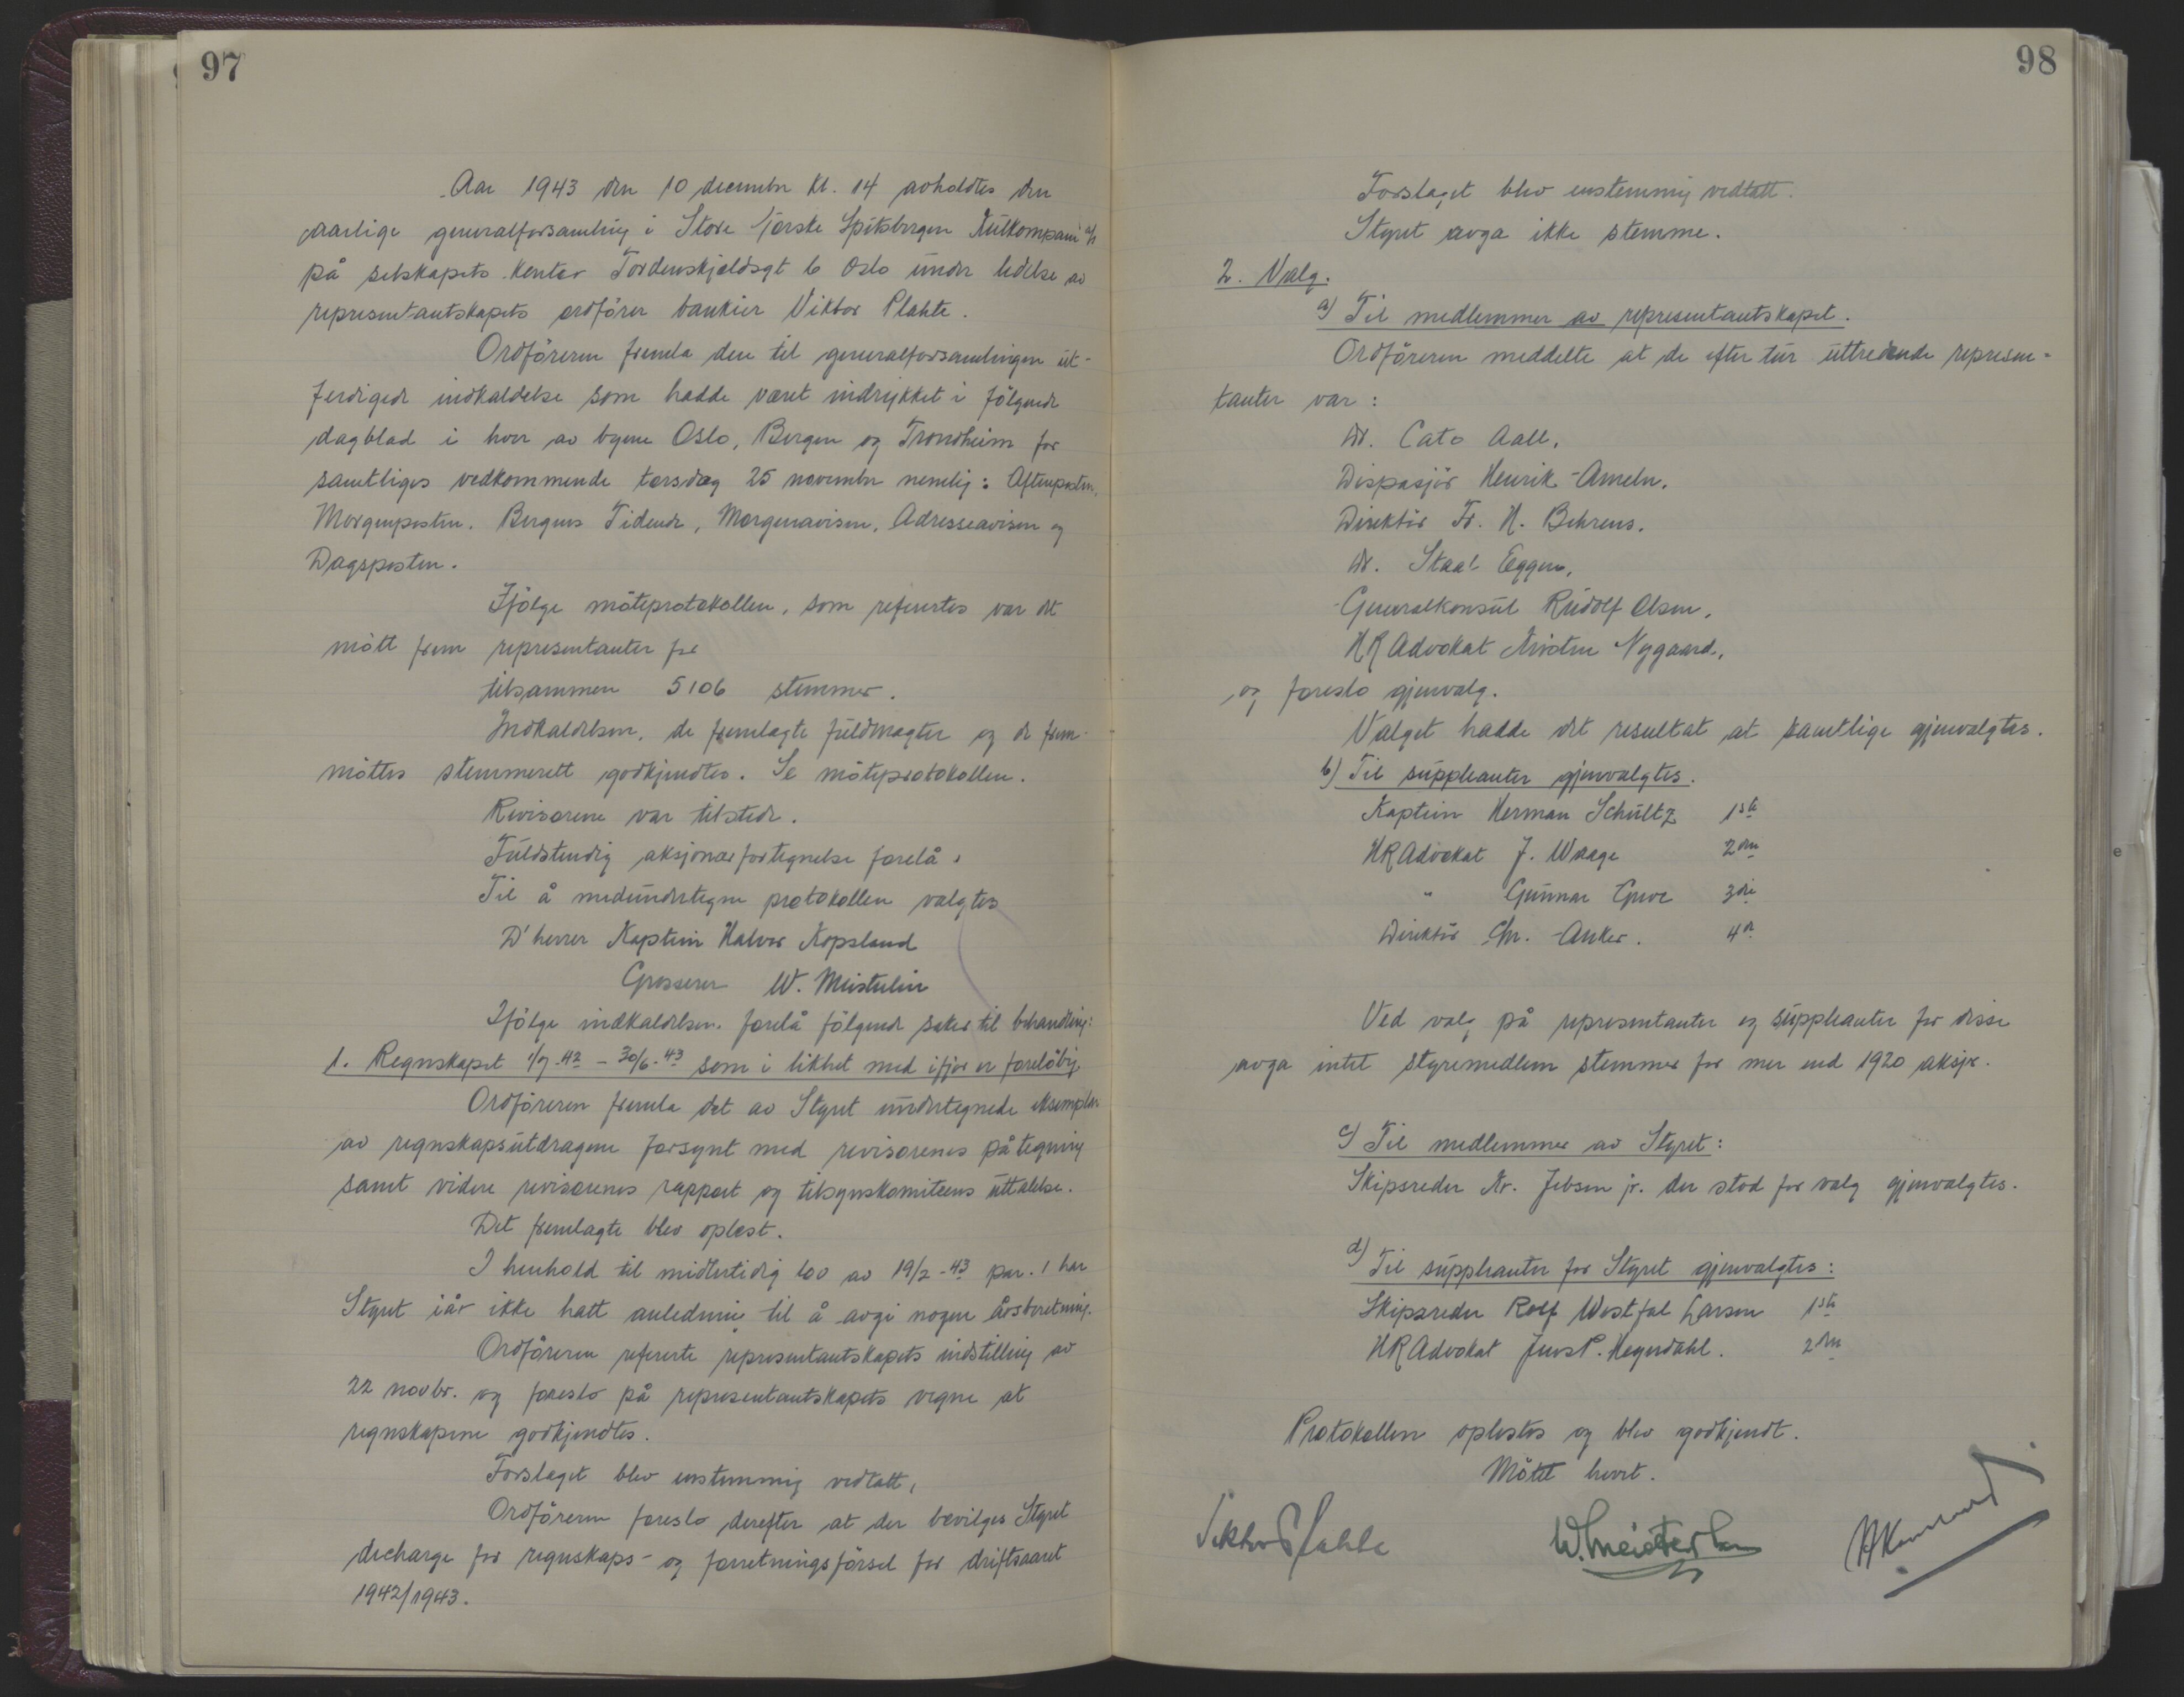 97
Aar 1943 den 10 decembr kl. 14 avholdtes den
aarlige generalforsamling i Store Norske Spitsbergen Kulkompani A/S
på selskapets kontor Tordenskjoldsgt 6 Oslo under ledelse av
representantskapets ordförer bankier Viktor Plahte.
Ordföreren fremla den til generalforsamlingen ut-
ferdigede indkaldelse som hadde været indrykket i følgende
dagblad i hver av byene Oslo, Bergen og Trondheim for
samtliges vedkommende torsdag 25 novembr nemlig: Aftenposten,
Morgenposten. Bergens Tidende, Morgenavisen, Adresseavisen og
Dagsposten.
Ifölge möteprotokollen, som refertes var det
mött frem representanter for
tilsammen 5106 stemmer.
Indkaldelsen, de fremlagte fuldmagter og de frem-
möttes stemmerett godkjendtes. Se möteprotokollen.
Revisorene var tilstede.
Fuldstendig aksjonærfortegnelse forelå.
Til å medundertegne protokollen valgtes
D'herrer Kaptein Halvor Kopsland
Grosserer W. Meisterlin
Ifölge indkaldelsen forelå fölgende saker til behandling:
1. Regnskapet 1/7-42 - 30/6-43 som i likhet med ifjor er forelöbig
Ordföreren fremla det av Styret undertegnede eksemplar
av regnskapsutdragene forsynt med revisorenes påtegning
samt videre revisorenes rapport og tilsynskomiteens uttalelse.
Det fremlagte blev oplest.
I henhold til midlertidig lov av 19/2-43 par. 1 har
Styret iår ikke hatt anledning til å avgi nogen årsberetning.
Ordföreren refererte representantskapets indstilling av
22 novbr. og foreslo på representantskapets vegne at
regnskapene godkjendtes.
Forslaget blev enstemmig vedtatt,
Ordföreren foreslo derefter at der bevilges Styret
decharge for regnskaps- og forretningsförsel for driftsaaret
1942/1943.
98
Forslaget blev enstemmig vedtatt.
Styret avga ikke stemme.
2. Valg.
a) Til medlemmer av representantskapet.
Ordföreren meddelte at de efter tur uttredende represen-
tanter var:
Dr. Cato Aall.
Dispasjör Henrik Ameln.
Direktör Fr. H. Behrens.
Dr. Staal Eggen,
Generalkonsul Rudolf Olsen,
HR Advokat Kristen Nygaard,
og foreslo gjenvalg.
Valget hadde det resultat at samtlige gjenvalgtes.
b) Til suppleanter gjenvalgtes.
Kaptein Herman Schultz 1ste
HR Advokat J. Waage 2den
" Gunnar 3die
Direktör Chr. Anker. 4de
Ved valg på representanter og suppleanter for disse
avga intet styremedlem stemmer for mer end 1920 aksjer.
c) Til medlemmer av Styret:
Skipsreder Kr. Jebsen jr. der stod for valg gjenvalgtes.
d) Til suppleanter for Styret gjenvalgtes:
Skipsreder Rolf Westfal Larsen 1ste
HR Advokat Jens P. Heyerdahl. 2den
Protokollen oplestes og blev godkjendt.
Mötet hevet.
Viktor Plahte W. Meisterlin